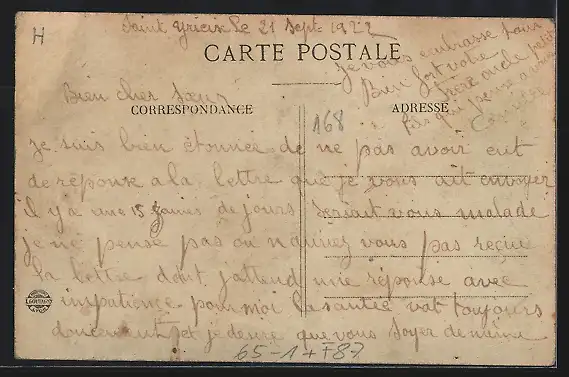 H
Saint Yrieix le 21 Sept 1922
CARTE POSTALE
Je vous embrasse tous
Bien fort votre
frère oncle petit
fils qui pense a vous
Bien cher Sœur
CORRESPONDANCE
ADRESSE
168
je suis bien étonnée de ne pas avoir eut
de réponse a la lettre que je vous ait envoyer
il y a une 15 zaines de jours serait vous malade
je ne pense pas ou n'auriez vous pas reçue
la lettre dont j'attend une réponse avec
inpatience pour moi la santée vat toujours
doucement et je desire que vous soyer de même
65-1+F87